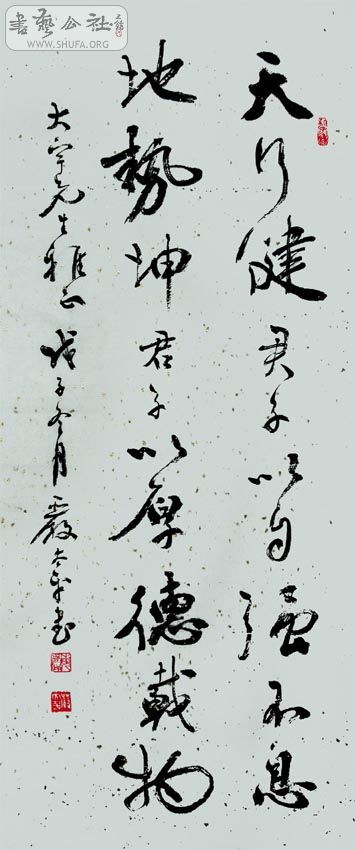 天行健君子以自强不息
地勢坤君子以厚德載物
大宇先生雅正 戊子冬月 嚴太平書
書藝公社
WWW.SHUFA.ORG